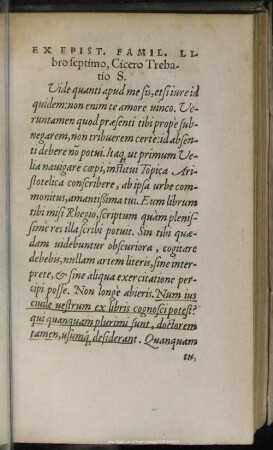 EX EPIST. FAMIL. LI-
bro septimo, Cicero Treba-
tio S.
Vide quanti apud me sis, etsi iure id
quidem: non enim te amore uinco. Ve-
runtamen quod præsenti tibi propè sub-
negarem, non tribuerem certè: id absen-
ti debere nõ potui. Itaq; ut primum Ve-
lia nauigare cœpi, institui Topica Ari-
stotelica conscribere, ab ipsa urbe com-
monitus, amantissima tui. Eum librum
tibi misi Rhegio, scriptum quàm plenis-
simè res illa scribi potuit. Sin tibi quæ-
dam uidebuntur obscuriora, cogitare
debebis, nullam artem literis, sine inter-
prete, & sine aliqua exercitatione per-
cipi posse. Non longè abieris. Num ius
ciuile uestrum ex libris cognosci potest?
qui quanquam plurimi sunt, doctorem
tamen, usumq́; desiderant. Quanquam